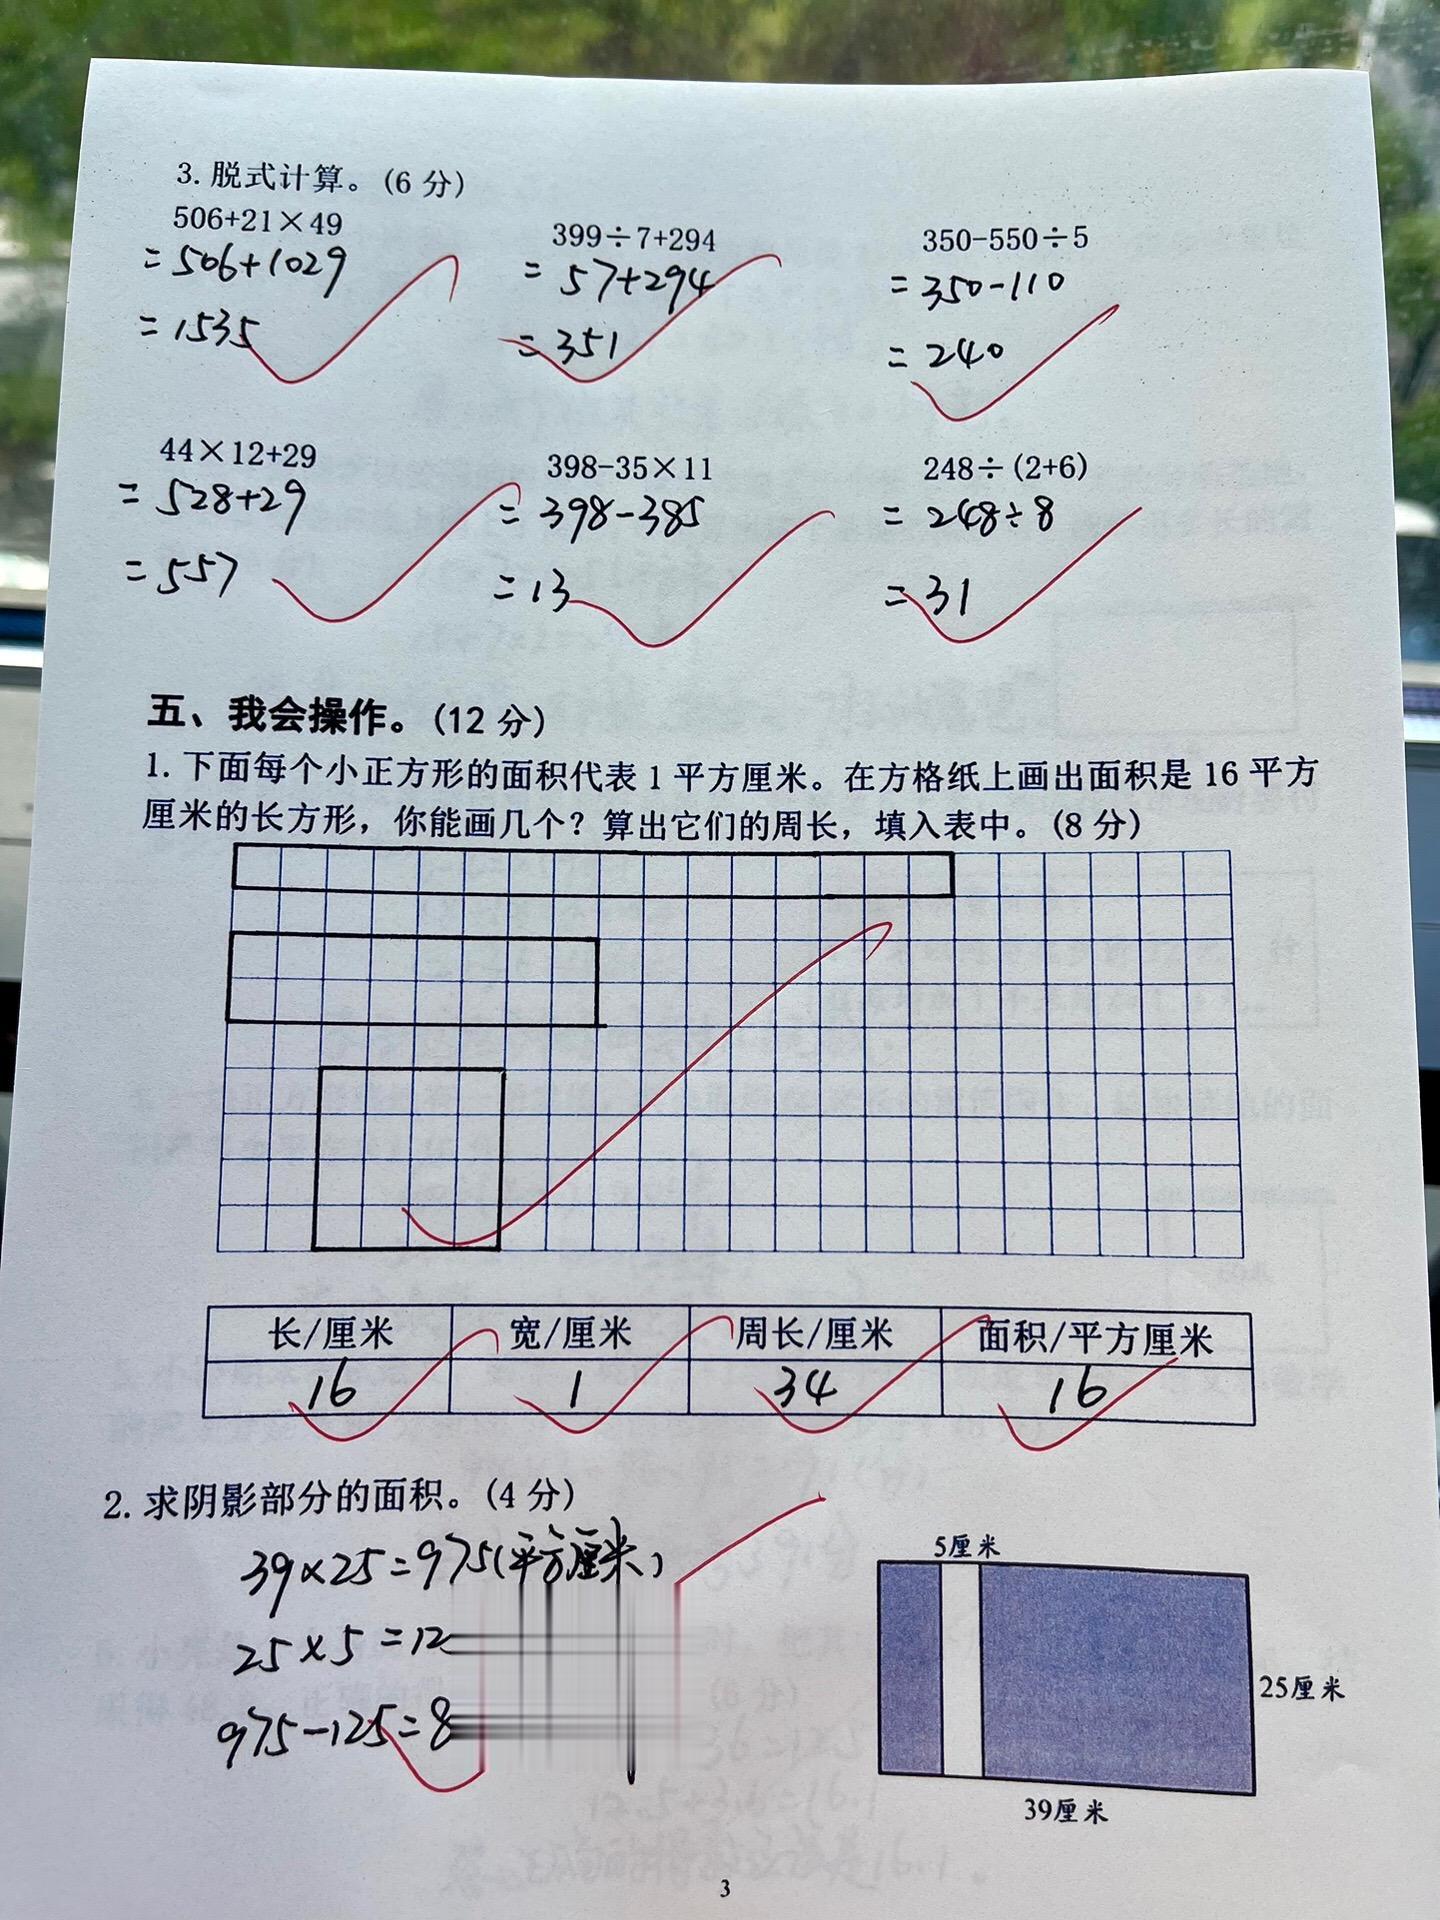 3. 脱式计算。(6 分)
506+21×49
=506+1029
=1535
399÷7+294
=57+294
=351
350-550÷5
=350-110
=240
44×12+29
=528+29
=557
398-35×11
=398-385
=13
248÷(2+6)
=248÷8
=31
五、我会操作。(12 分)
1. 下面每个小正方形的面积代表 1 平方厘米。在方格纸上画出面积是 16 平方
厘米的长方形，你能画几个？算出它们的周长，填入表中。(8 分)
长/厘米 宽/厘米 周长/厘米 面积/平方厘米
16 1 34 16
2. 求阴影部分的面积。(4 分)
39×25=975(平方厘米)
25×5=12
975-125=8
5厘米
25厘米
39厘米
3